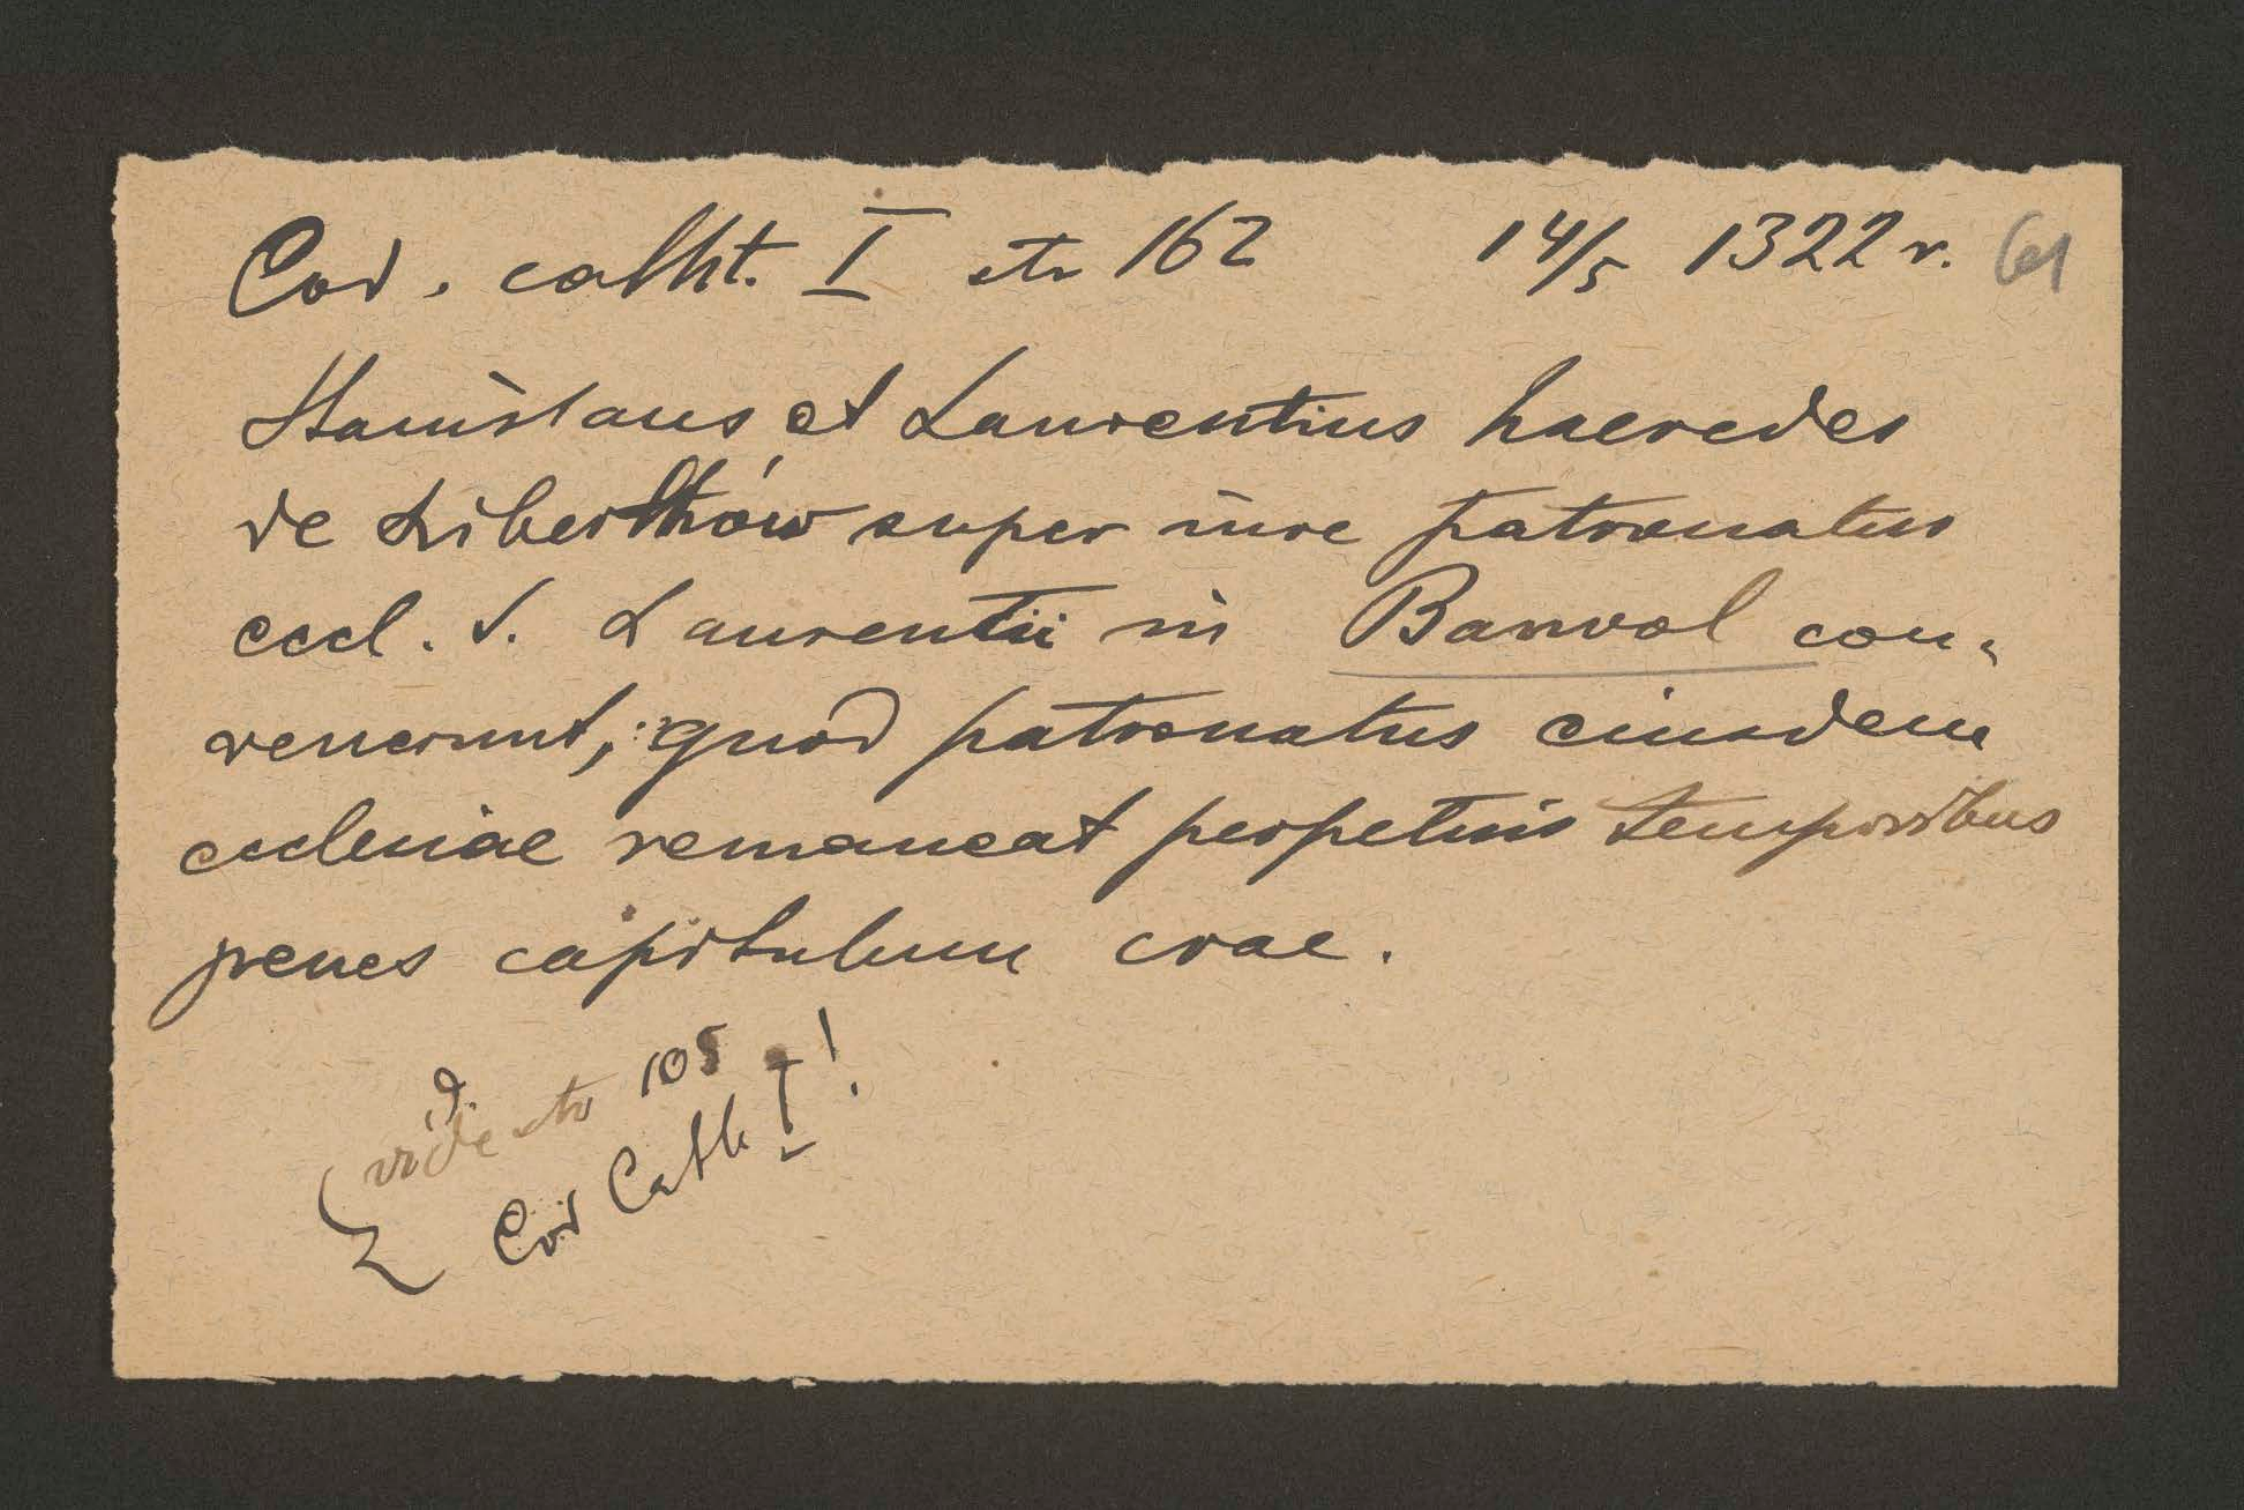 Cod. catht. I str 162 14/5 1322 r. 61
Stanislaus et Laurentius haeredes
de Liberthów super iure patronatus
eccl. S. Laurentii in Banwol con-
venerunt, quod patronatus eiusdem
ecclesiae remaneat perpetuis temporibus
penes capitulum crac.
vide str 105
Cod Cath I!